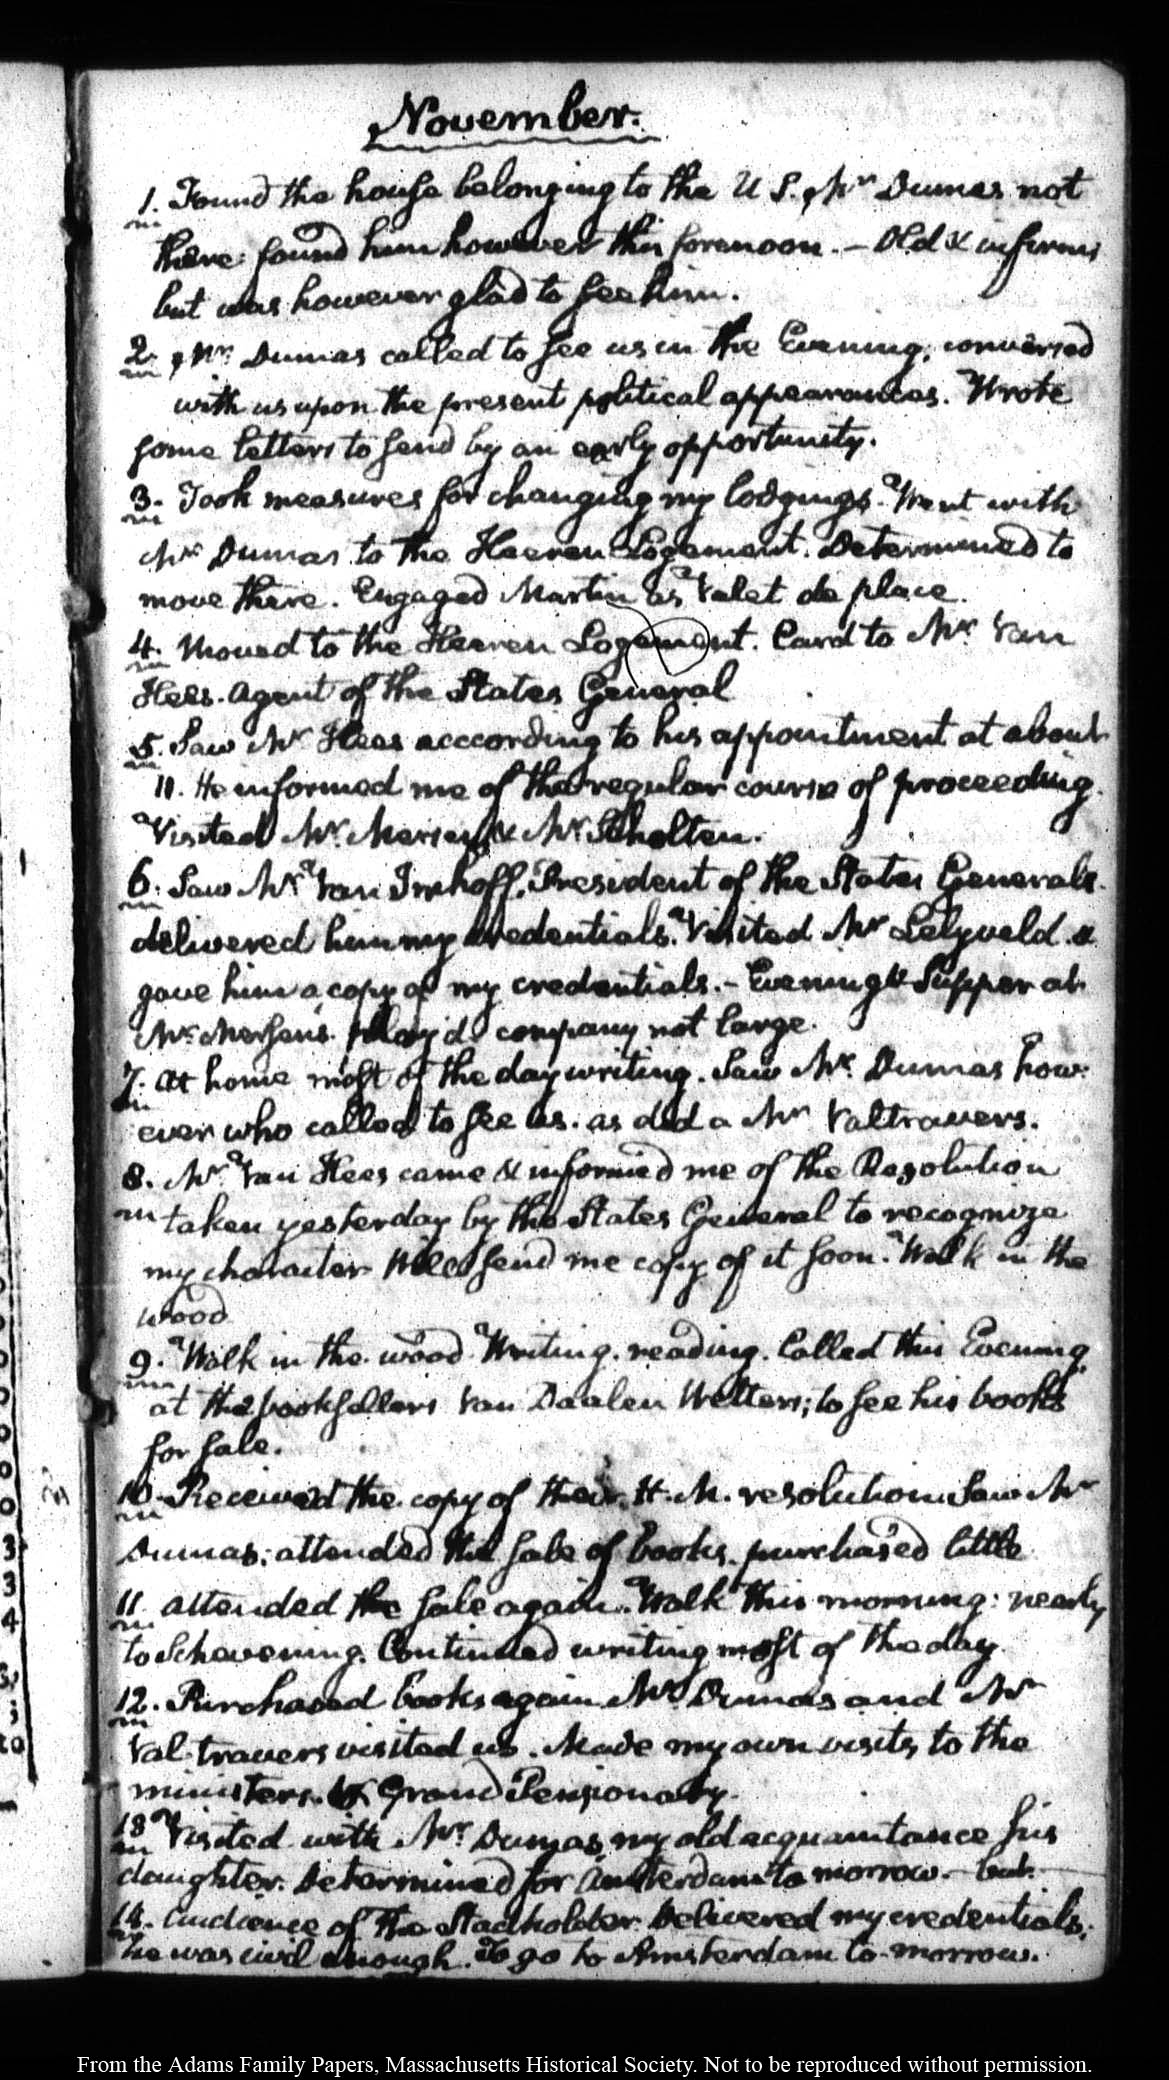 November.
1. Found the house belonging to the U S. Mr Dumas not
there: found him however this forenoon. – Old & infirm,
but was however glad to see him.
2. Mr. Dumas called to see us in the Evening; conversed
with us upon the present political appearances. Wrote
some letters to send by an early opportunity.
3. Took measures for changing my lodgings. Went with
Mr Dumas to the Heeren Logement. Determined to
move there. Engaged Martin as Valet de place.
4. Moved to the Heeren Logement. Card to Mr. Van
Hees. Agent of the States General
5. Saw Mr Hees acccording to his appointment at about
11. He informed me of the regular course of proceeding.
Visited Mr. & Mr. Scholten.
6. Saw Mr Van Imhoff, President of the States General.
delivered him my credentials. Visited Mr Lelyveld. &
gave him a copy of my credentials. – Evening & Supper at
Mr. play'd company not large.
7. At home most of the day writing. Saw Mr. Dumas how:
ever who called to see us. as did a Mr Valtravers.
8. Mr. Van Hees came & informed me of the Resolution
taken yesterday by the States General to recognize
my character Will send me copy of it soon. Walk in the
wood
9. Walk in the wood. Writing. reading. Called this Evening
at the booksellers Van Daalen Wetters; to see his books
for sale.
10. Received the copy of their H. M. resolution Saw Mr
Dumas; attended the sale of books. purchased little
11. Attended the sale again. Walk this morning: nearly
to Schevening. Continued writing most of the day.
12. Purchased books again Mr Dumas and Mr
Valtravers visited us. Made my own visits to the
ministers. & Grand Pensionary.
13 Visited with Mr Dumas, my old acquaintance his
daughter. Determined for Amsterdam to morrow. – but.
14. Audience of the Stadholder. Delivered my credentials.
he was civil enough. To go to Amsterdam to-morrow.
3
3
4
to
From the Adams Family Papers, Massachusetts Historical Society. Not to be reproduced without permission.